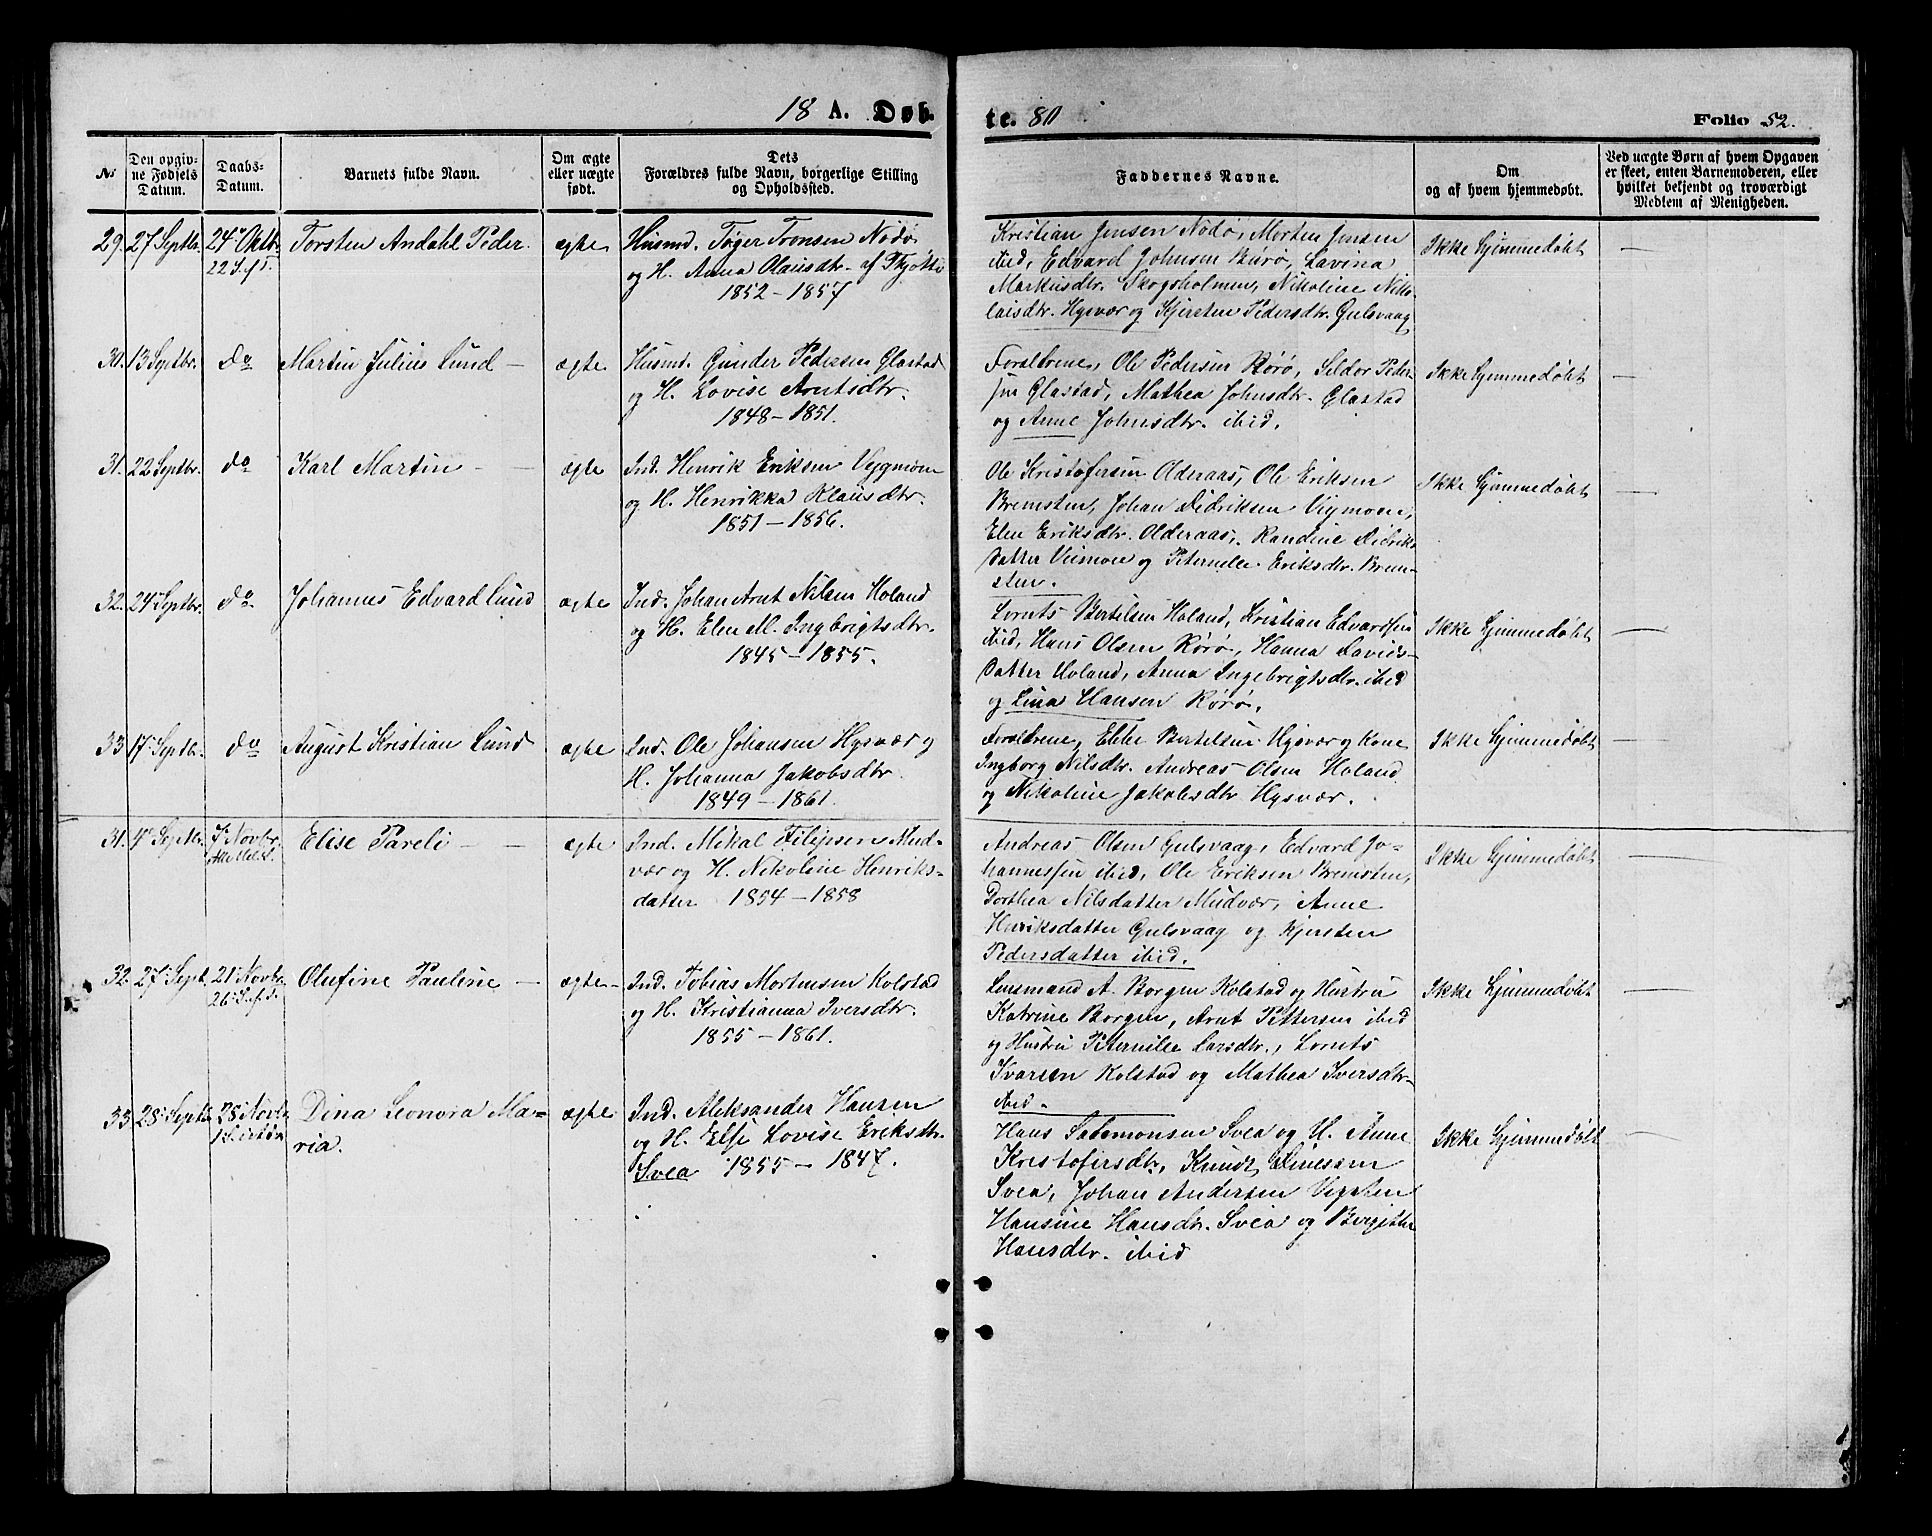 18 A. Døb-
te. 80
Folio 52.
№
Den opgiv-
ne Fødsels
Datum.
Daabs-
Datum.
Barnets fulde Navn.
Om ægte
eller uægte
født.
Dets
Forældres fulde Navn, borgerlige Stilling
og Opholdssted.
Faddernes Navne.
Om
og af hvem hjemmedøbt.
Ved uægte Børn af hvem Opgaven
er skeet, enten Barnemoderen, eller
hvilket bekjendt og troværdigt
Medlem af Menigheden.
29. 27 Septbr. 24de Oktbr. Torsten Andahl Peder. ægte Husmd. Tøger Tronsen Nødø
22 S. e. f. T. og H. Anna Olausdtr. af Thjøttø
1852 - 1857
Kristian Jensen Nødø, Morten Jensen
ibid, Edvard Johnsen Burø, Lavina
Markusdtr. Skogsholmen, Nikoline Niko-
laisdtr. Hysvær og Kjersten Pedersdtr. Gulsvaag
Ikke hjemmedøbt —
30. 13 Septbr. do Martin Julius Lund — ægte Husmd. Gunder Pedersen Glastad
og H. Lovise Arntsdtr.
1848 - 1851.
Forældrene, Ole Pedersen Rørø, Seldor Peder-
sen Glastad, Mathea Johnsdtr. Glastad
og Anne Johnsdtr. ibid.
Ikke hjemmedøbt —
31. 22 Septbr. do Karl Martin — ægte Ind. Henrik Eriksen Vegmoen
og H. Henrikka Klausdtr.
1851 - 1856.
Ole Kristofersen Olderaas, Ole Eriksen
Bremsten, Johan Didriksen Vigmoen,
Elen Eriksdtr. Olderaas, Randine Didriks-
datter Veimoen og Peternille Eriksdtr. Brem-
sten.
Ikke hjemmedøbt —
32. 24 Septbr. do Johannes Edvard Lund ægte Ind. Johan Arnt Nilsen Holand
og H. Elen M. Ingbrigtsdtr.
1845 - 1855.
Lornts Bertelsen Holand, Kristian Edvardsen
ibid, Hans Olsen Rørø, Hanna Davids-
datter Holand, Anna Ingebrigtsdtr. ibid
og Lina Hansen Rørø.
Ikke hjemmedøbt —
33 17 Septbr. do August Kristian Lund ægte Ind. Ole Johansen Hysvær og
H. Johanna Jakobsdtr.
1849 - 1861.
Forældrene, Ebbe Bertelsen Hysvær og Kone
Ingborg Nilsdtr. Andreas Olsen Holand
og Nikoline Jakobsdtr Hysvær.
Ikke hjemmedøbt —
31. 4 Septbr. 7 Novbr. Elise Pareli — ægte Ind. Mikal Filipsen Mud-
vær og H. Nikoline Henriks-
datter 1854 - 1858
Andreas Olsen Gulsvaag, Edvard Jo-
hannessen ibid, Ole Eriksen Bremsten,
Dorthea Nilsdatter Mudvær, Anne
Henriksdatter Gulsvaag og Kjersten
Pedersdatter ibid.
Ikke hjemmedøbt —
32. 27 Sept. 21 Novbr. Olufine Pauline — ægte Ind. Tobias Mortensen Kolstad
og H. Kristianna Iversdtr.
1855 - 1861.
Lensmand A. Borgen Kolstad og Hustru
Katrine Borgen, Arnt Pettersen ibid
og Hustru Peternille Larsdtr., Lornts
Ivarsen Kolstad og Mathea Iversdtr.
ibid.
Ikke hjemmedøbt —
33 28 Septbr 28 Novbr Dina Leonora Ma- ægte Ind. Aleksander Hansen
ria. og H. Else Lovise Eriksdtr.
Svea 1855 - 1847.
Hans Salomonsen Svea og H. Anne
Kristofersdtr, Knudt Dinessen
Svea, Johan Andersen Vegsten
Hansine Hansdtr. Svea og Bergitte
Hansdtr. ibid
Ikke hjemmedøbt —